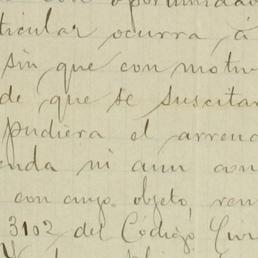 con oportunidad
ticular ocurra, á
sin que con motiv
de que se suscitar
pudiera el arrend
enda ni aun con
con cuyo objeto, ren
3102 del Código Civi